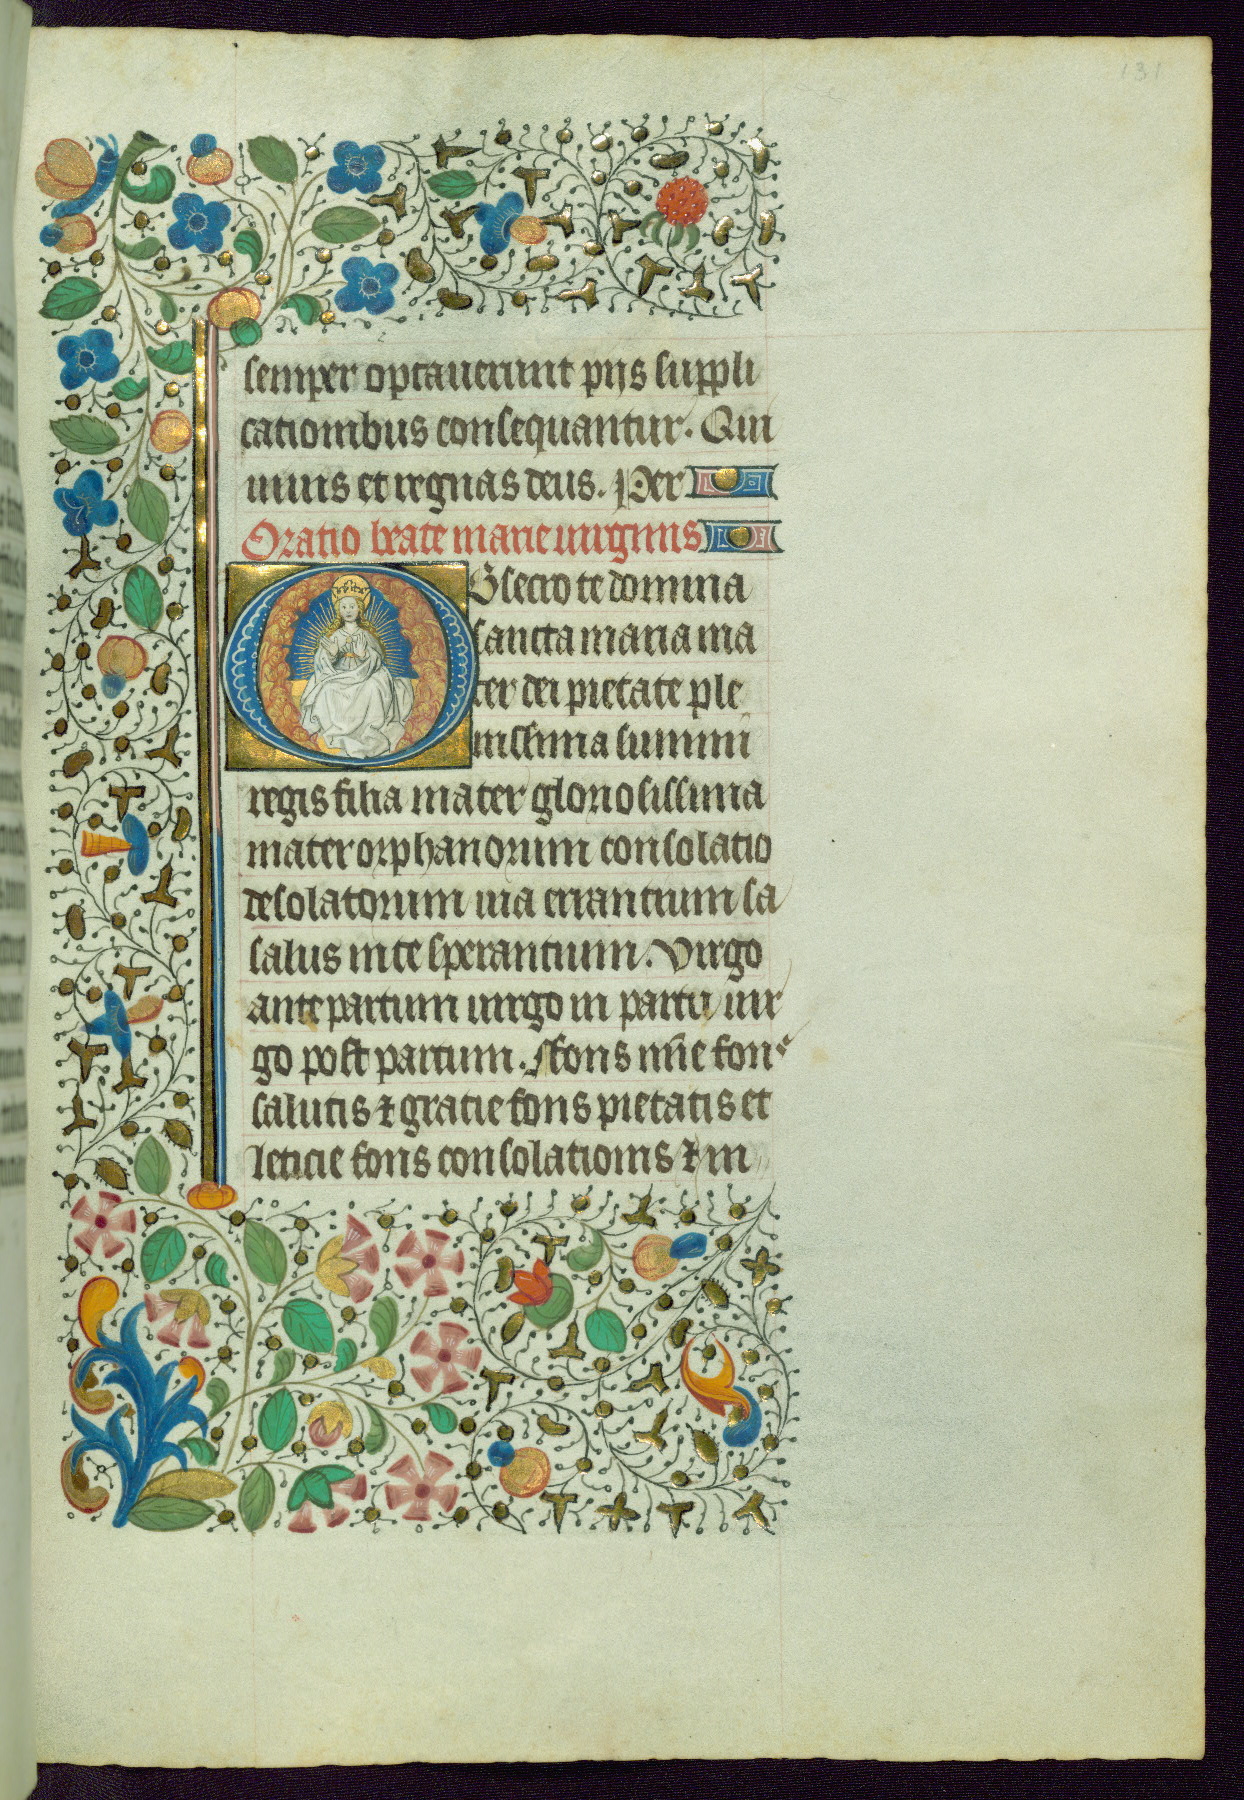 131
semper optauerunt pijs suppli
cationibus consequantur. Qui
uiuis et regnas deus. Per
Oratio beate marie uirginis
Obsecro te domina
sancta maria ma
ter dei pietate ple
nissima summi
regis filia mater gloriosissima
mater orphanorum consolatio
desolatorum uia errantium sa
salus in te sperantium. Virgo
ante partum uirgo in partu uir
go post partum. Fons mi͞e fons
salutis ⁊ gratie fons pietatis et
leticie fons consolationis ⁊ in